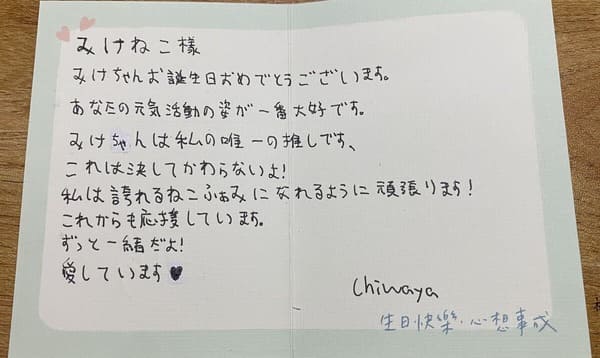 みけねこ様
みけちゃんお誕生日おめでとうございます。
あなたの元気活動の姿が一番大好です。
みけちゃんは私の唯一の推しです、
これは決してかわらないよ!
私は誇れるねこふぁみになれるように頑張ります!
これからも応援しています。
ずっと一緒だよ!
愛しています♥
Chiwaya
生日快樂·心想事成